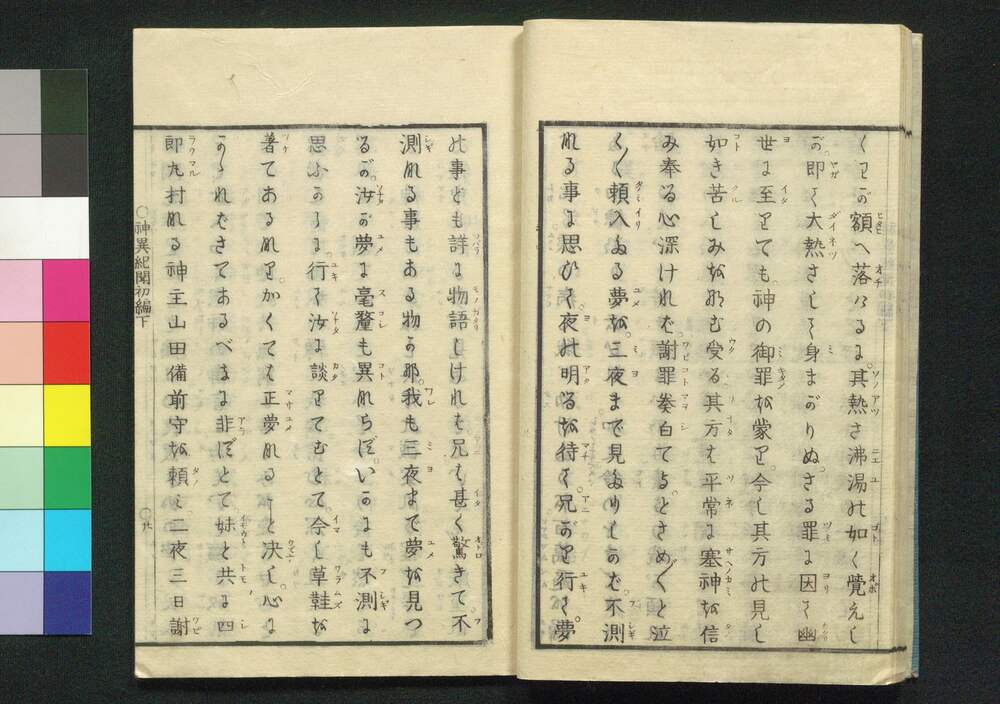 くわが額へ落けるに其熱さ沸湯の如く覚えし
が即て大熱さして身まがりぬさる罪に因て幽
世に至りても神の御罪を蒙り今し其方の見し
如き苦しみをなむ受る其方は平常に塞神を信
み奉る心深けれど謝罪奏白てよとさめ〴〵と泣
く〳〵頼入たる夢を三夜まで見たりしかど不測
なる事に思ひて夜の明るを待て兄がり行て夢
の事ども詳に物語しければ兄も甚く驚きて不
測なる事もある物か那我も三夜まで夢を見つ
るが汝が夢に毫釐も異ならずいかにも不測に
思ふからに行て汝に談りてむとて今し草鞋を
著てあるなりかくては正夢なるしと決し心に
かゝればさてあるべきに非ずとて妹と共に四
郎丸村なる神主山田備前守を頼み二夜三日謝
神異紀聞初編下